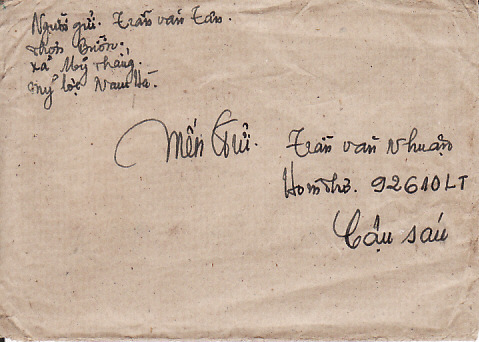 Người gửi. Trần văn Tân.
thôn Buôn.
xã Mỹ thắng.
Mỹ lộc Nam Hà.
Mến Gửi. Trần văn Nhuận
Hòm thư. 92610LT
Cậu sáu